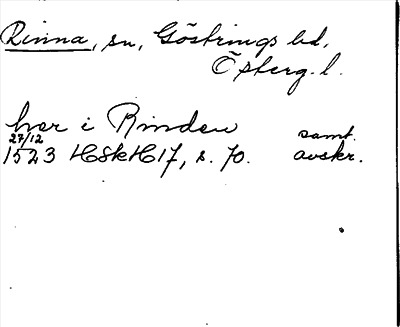 Rinna, sn, Göstrings hd,
Östergl.
her i Rinden
27/12 samt.
1523 HSkH17, s. 70. avskr.